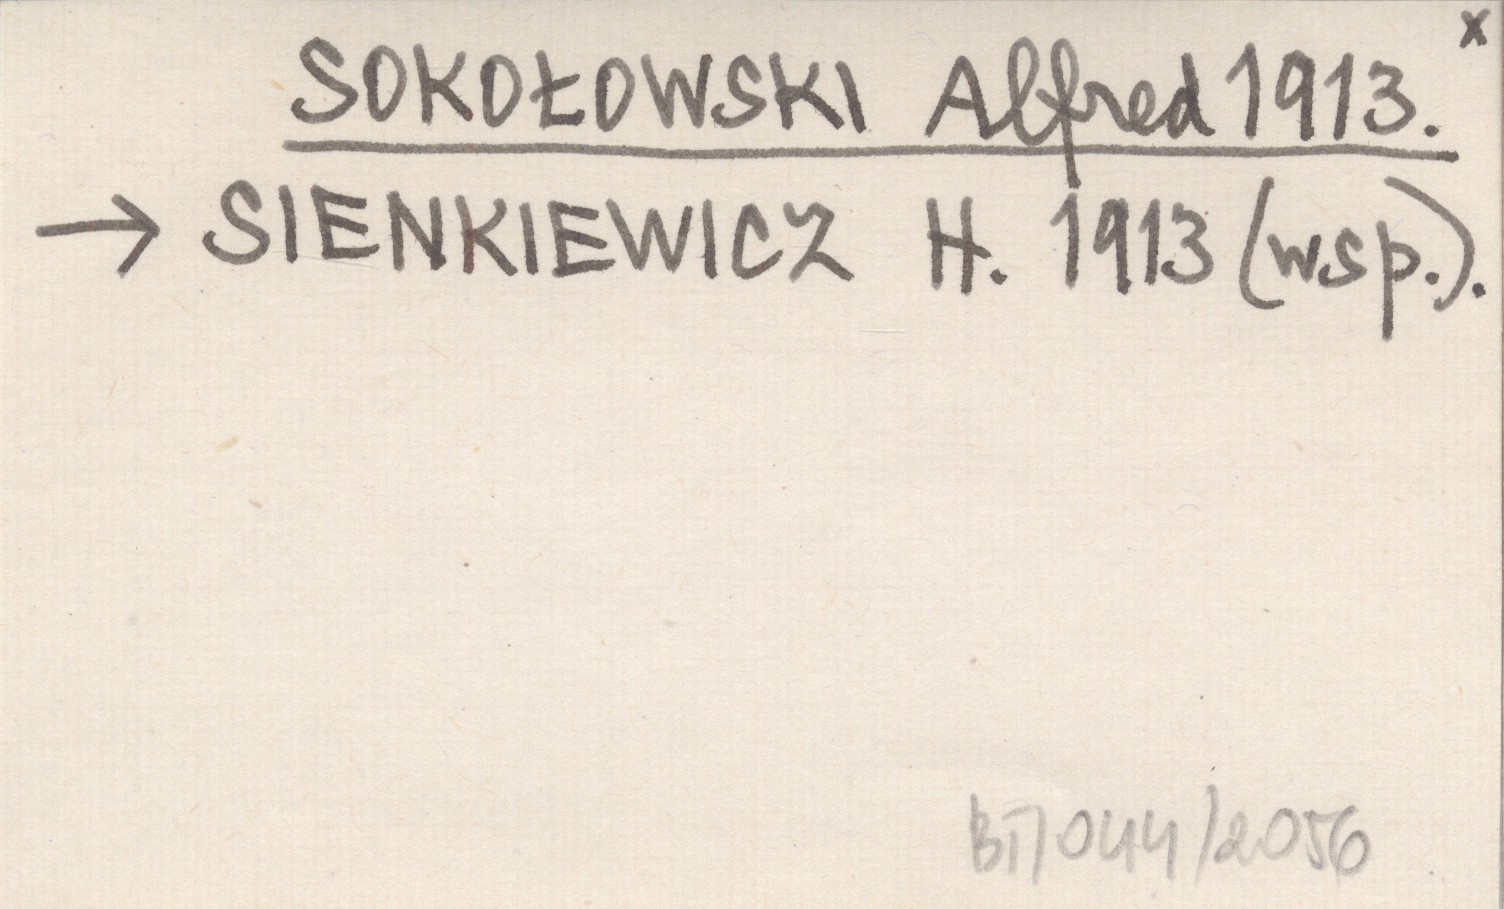 x
SOKOŁOWSKI Alfred 1913.
→ SIENKIEWICZ H. 1913 (wsp.).
044/2056